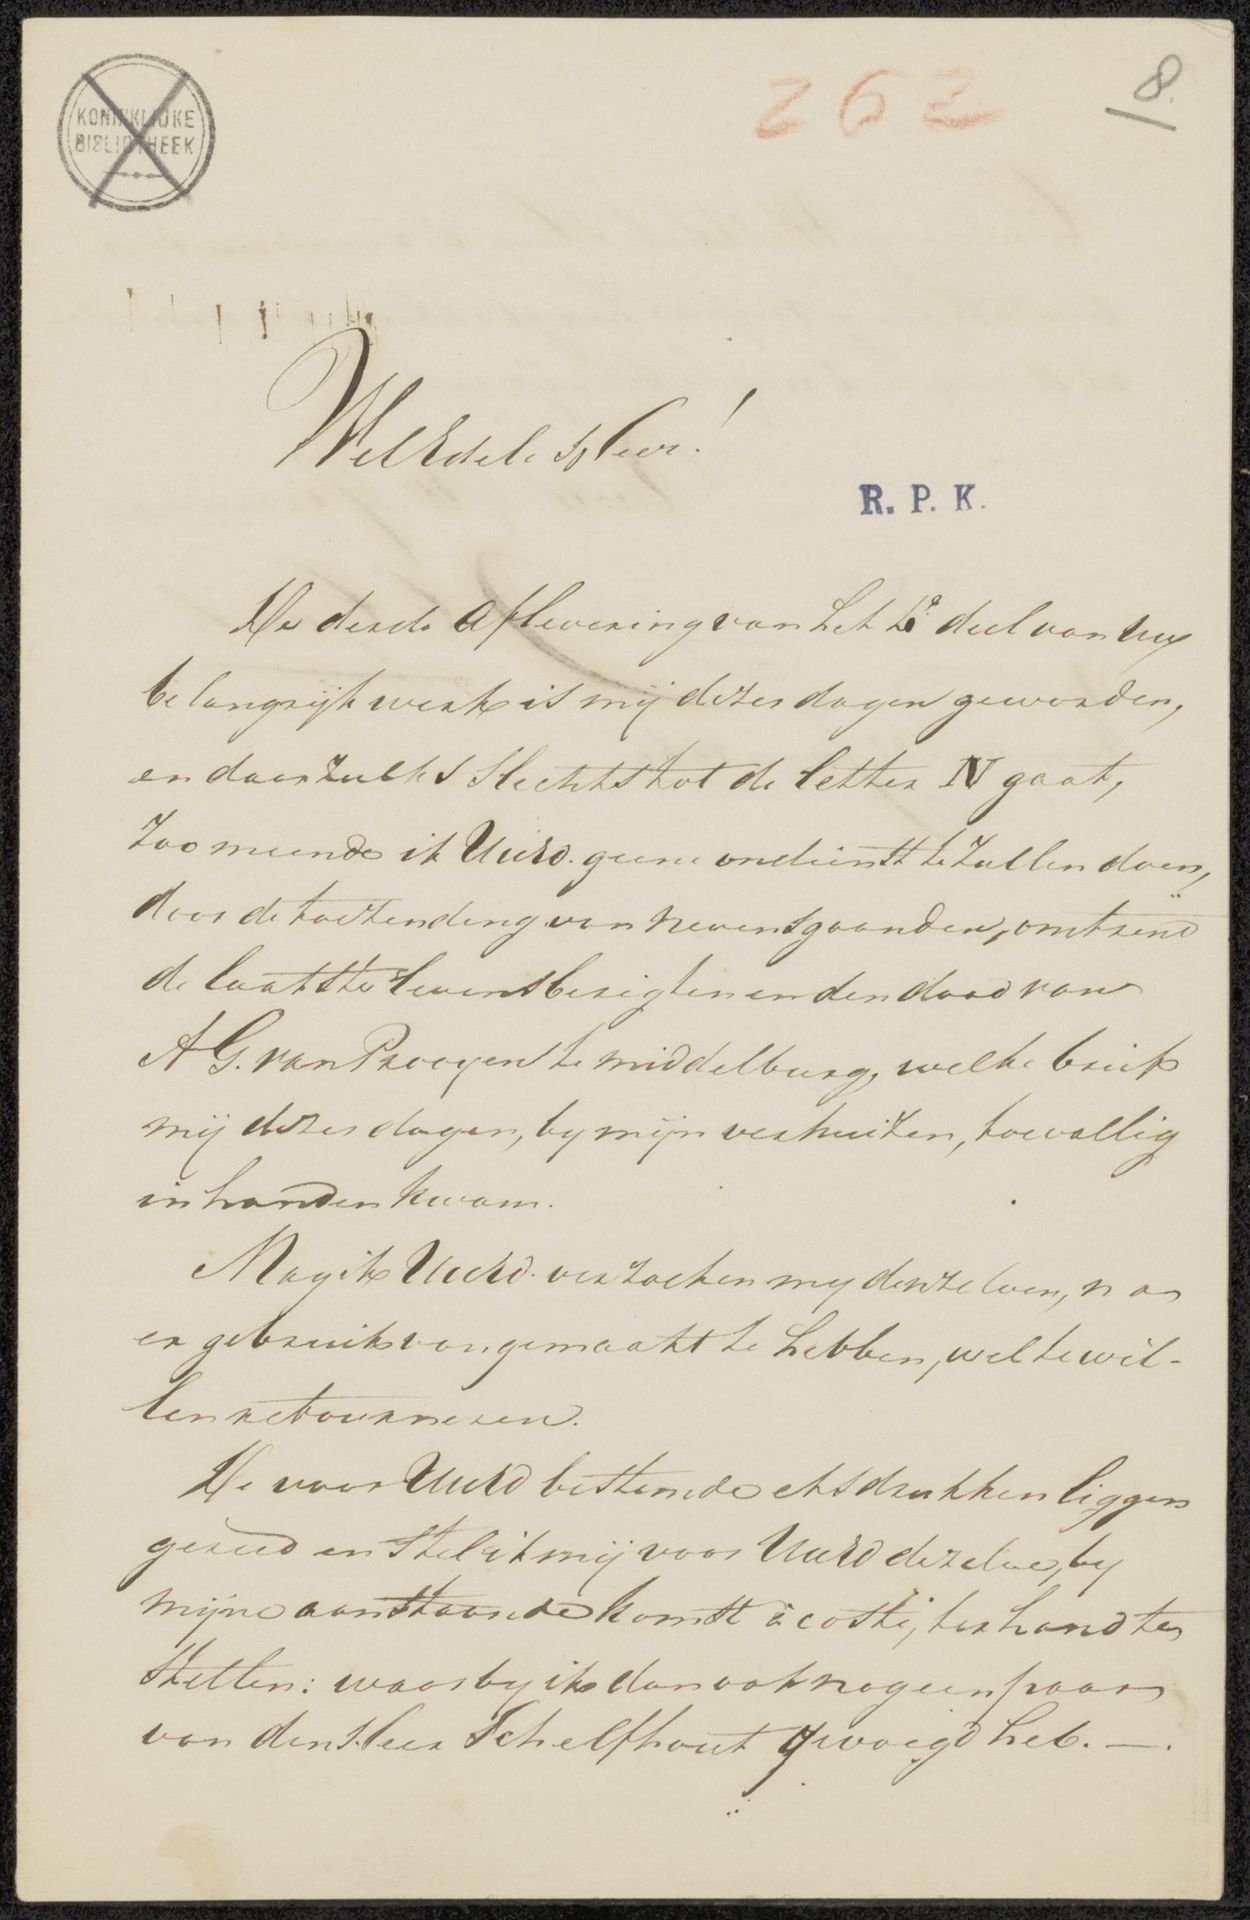 KONINKLIJKE
BIBLIOTHEEK
262
8.
WelEdele Heer!
R. P. K.
De derde Aflevering van het 2e deel van uw
belangrijk werk is mij dezer dagen geworden,
en daar zulks slechts tot de letter N gaat,
zoo meende ik UwEd. geene ondienst te zullen doen,
door de toezending van nevensgaanden, omtrend
de laatste levensberigten en den dood van
A G. van Prooyen te middelburg, welke brief
mij dezer dagen, by mijn verhuizen, toevallig
in handen kwam.
Mag ik UwEd. verzoeken my denzelven, na
er gebruik van gemaakt te hebben, wel te wil-
len retourneren.
De voor UwEd bestemde etsdrukken liggen
gereed en stel ik mij voor UwEd dezelve, by
mijne aanstaande komst à costi, ter hand te
stellen: waarby ik dan ook nog een paar
van den Heer Schelfhout gevoegd heb. —.